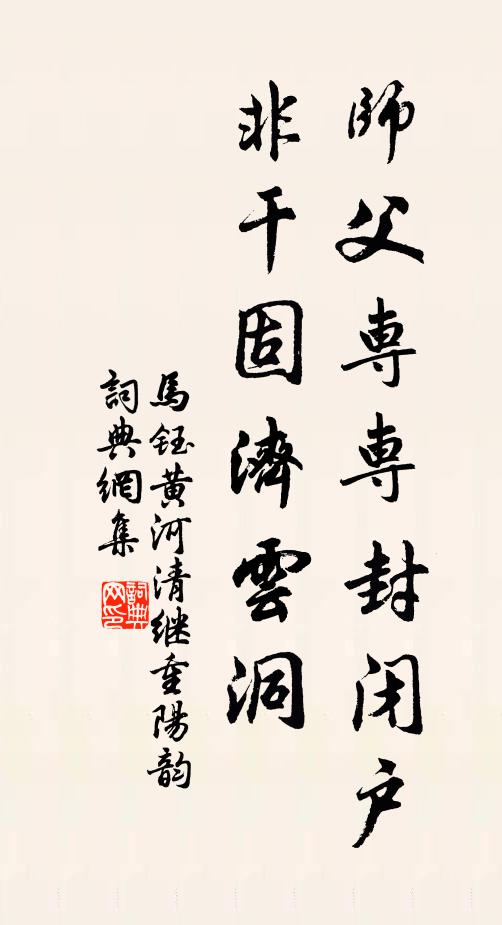 師父専専封閉户
非干固濟雲洞
馬鈺黄河清继重陽韵
詞典網集
詞典网印